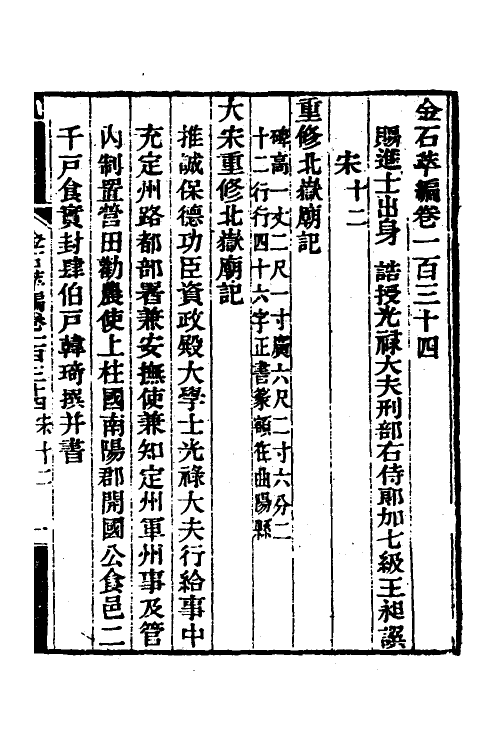 金石萃編卷一百三十四
賜進士出身 誥授光祿大夫刑部右侍郎加七級王昶譔
宋十二
重修北嶽廟記
碑高一丈二尺一寸廣六尺二寸六分二
十二行行四十六字正書篆額在曲陽縣
大宋重修北嶽廟記
推誠保德功臣資政殿大學士光祿大夫行給事中
充定州路都部署兼安撫使兼知定州軍州事及管
內制置營田勸農使上柱國南陽郡開國公食邑二
千戸食實封肆伯戸韓琦撰并書
金石萃編卷一百三十四宋十二 一